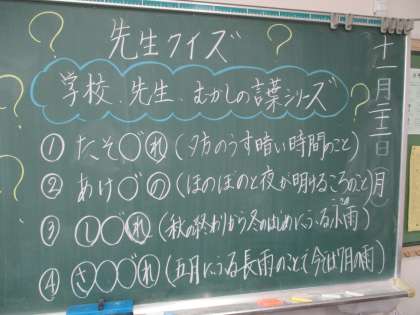 先生クイズ
学校、先生、むかしの言葉シリーズ
① たそ○゛れ (夕方のうす暗い時間のこと)
② あけ○゛の (ほのぼのと夜が明けるころのこと)
③ し○゛れ (秋の終わりから冬のはじめにふる小雨)
④ さ○○゛れ (五月にふる長雨のことで今では7月の雨)
十一月二十二日(月)